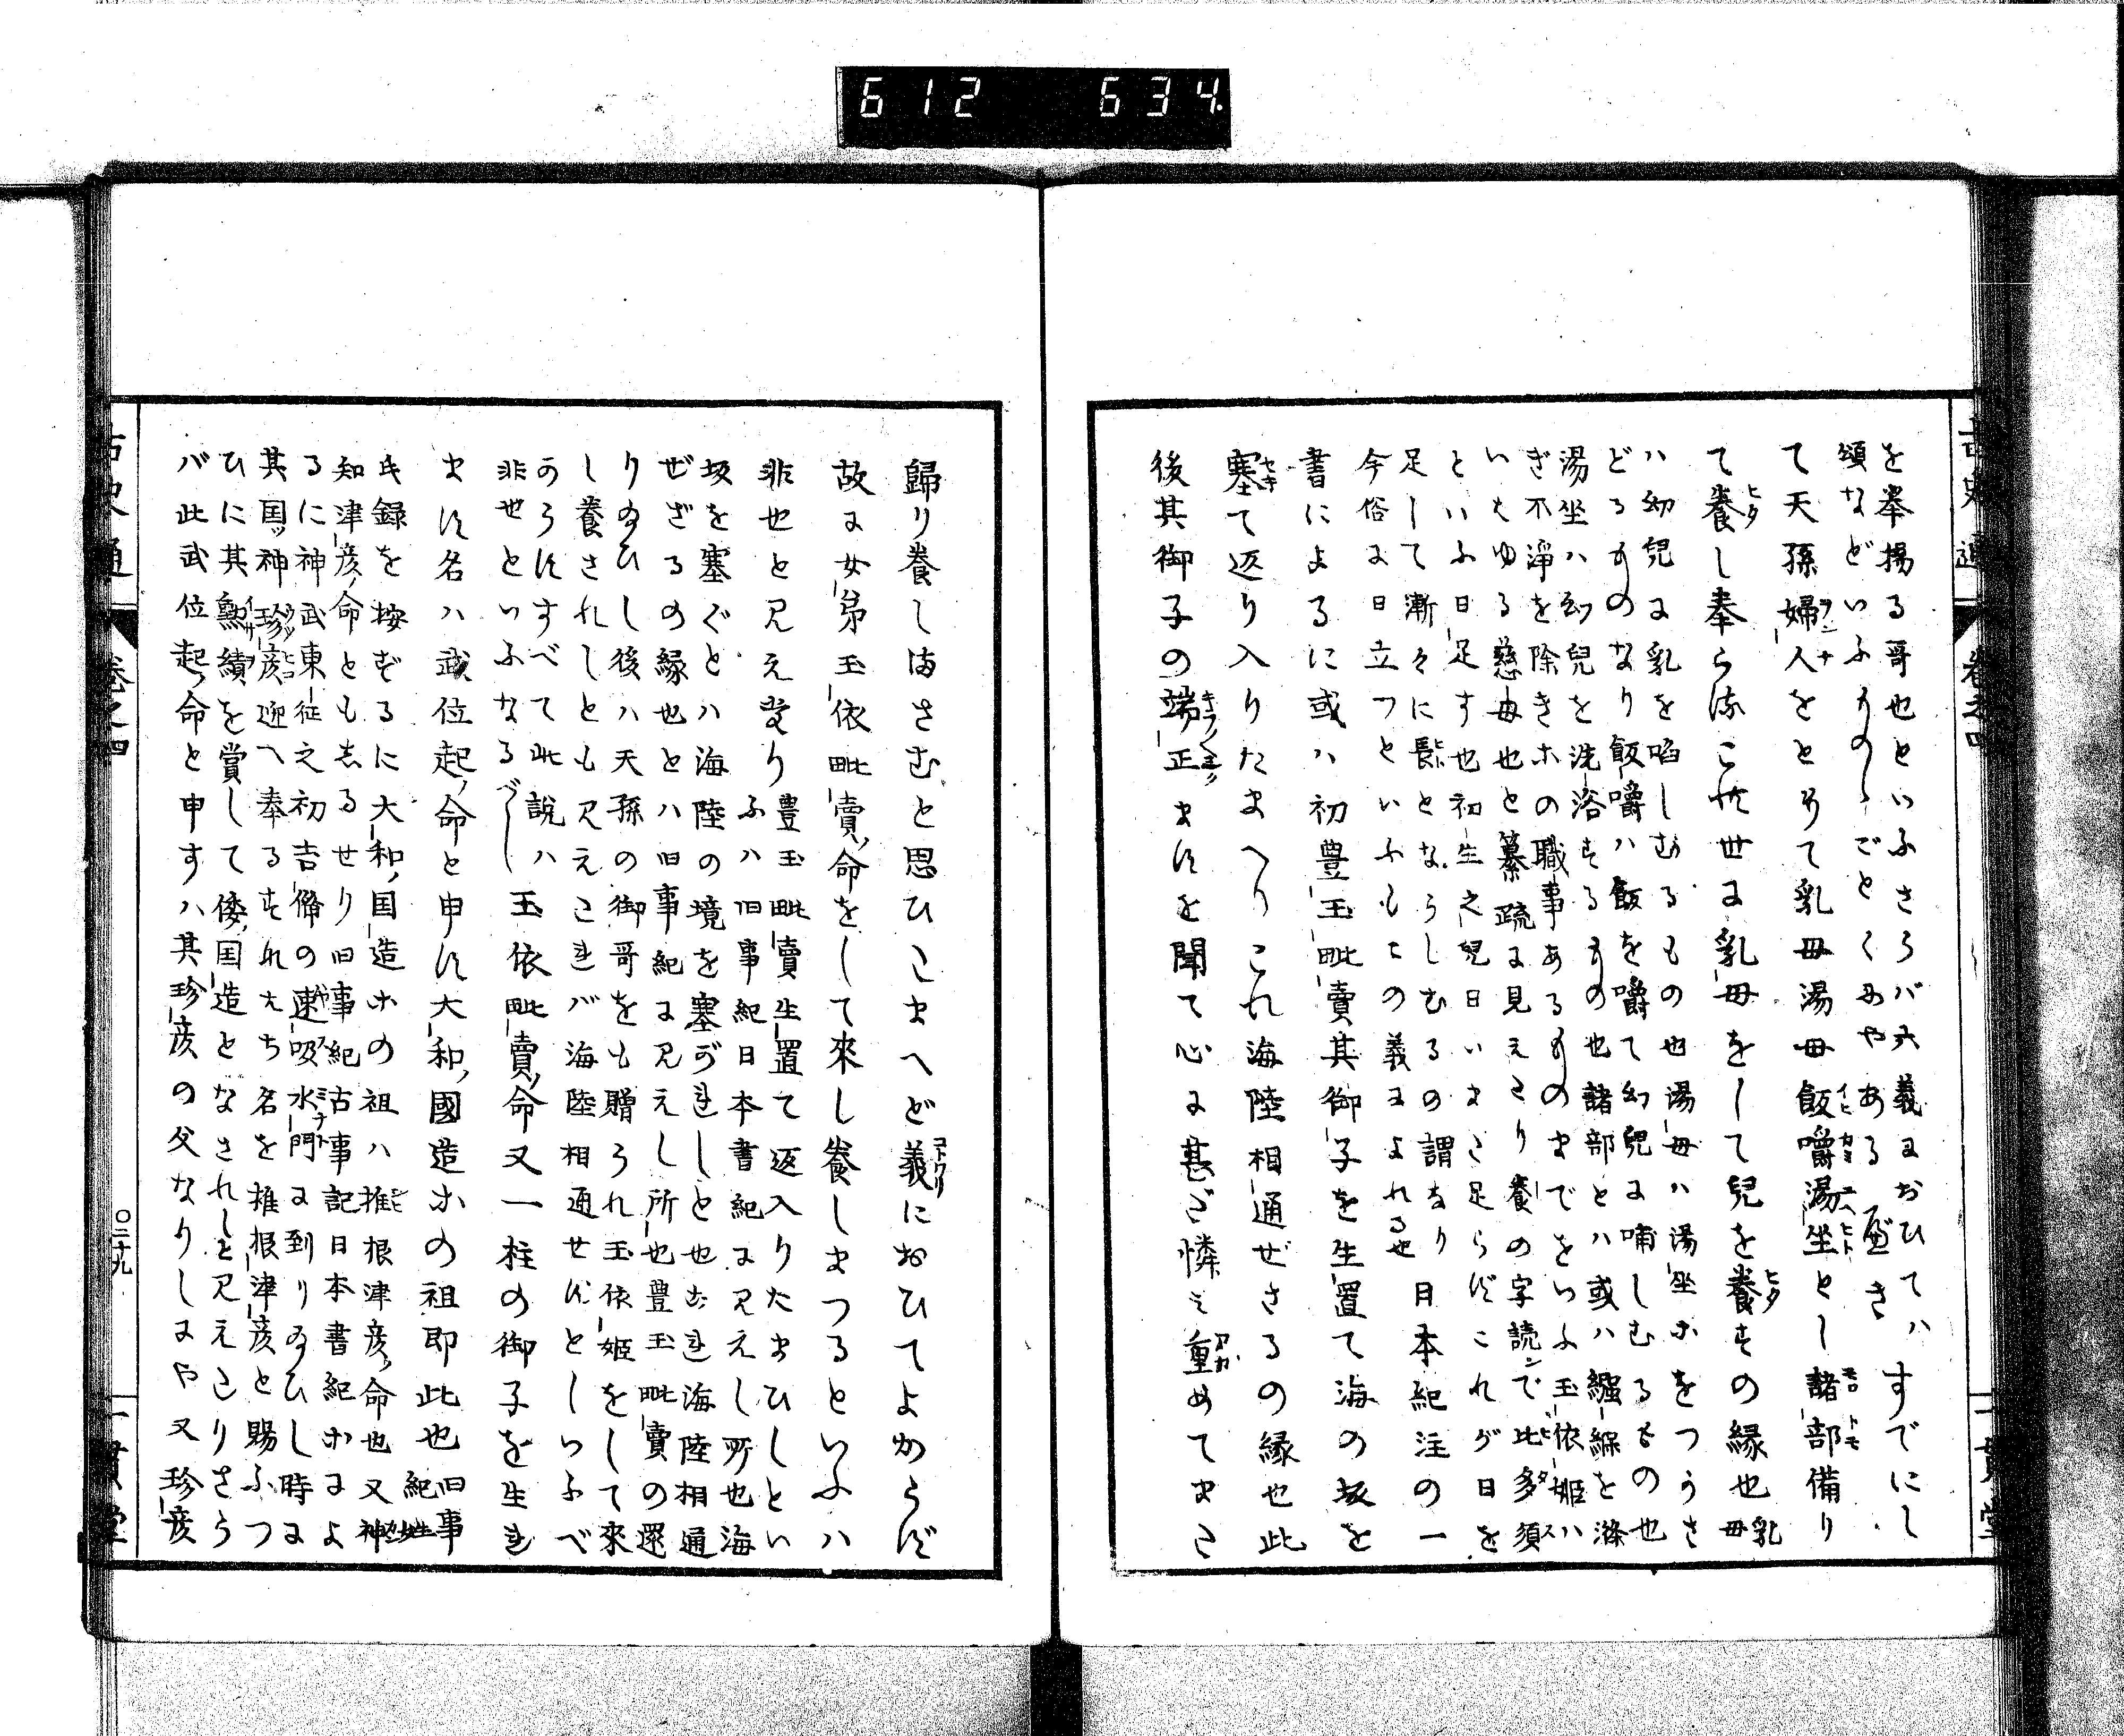 612 634.
を挙揚る哥也といふさらバ大義におひてハすでにし
頌などいふものゝでとくみやある
て天孫婦人をとりて乳母湯母飯嚼湯坐とし諸部備り
て養し奉らるこれ世に乳母をして兒を養すの縁也乳母
ハ幼兒に乳を哺しむるもの也湯母ハ湯坐ホをつかさ
どるものなり飯嚼ハ飯を嚼て幼兒に哺しむるもの也
湯坐ハ幼兒を洗浴するもの也諸部とハ或ハ繦緥を滌
ぎ不淨を除きホの職事あるものまでをいふ玉依姫ハ
いはゆる慈母也と纂疏に見えたり養の字読ンで比多須
といふ日足す也初生之兒日いまた足らずこれが日を
足して漸々に長となならしむるの謂なり日本紀注の一
今俗に日立つといふもこの義によれる也
書によるに或ハ初豊玉毗賣其御子を生置て海の坂を
塞て返り入りたまへりこれ海陸相通ぜさるの縁也此
後其御子の端正ますを聞て心に甚だ憐み重めてまた
歸り養しまさむと思ひたまへど義におひてよからず
故に女弟玉依毗賣命をして來し養しまつるといふハ
非也と見え
豊玉毗賣生置て返入りたまひしとい
ふハ旧事紀日本書紀に見えし所也海
坂を塞ぐとハ海陸の境を塞がれしと也され海陸相通
ぜざるの縁也とハ旧事紀に見えし所也豊玉毗賣の還
り給ひし後ハ天孫の御哥をも贈られ玉依姫をして來
し養されしとも見えたれバ海陸相通せずとしいふべ
のらすすべて此說ハ
非也といふなるべし
玉依毗賣命又一柱の御子を生れ
ます名ハ武位起命と申す大和國造ホの祖即此也旧事紀姓
氏録を按ずるに大和国造ホの祖ハ推根津彦命也又神
知津彦命ともしるせり旧事紀古事記日本書紀ホによ
るに神武東征之初吉備の速吸水門に到り給ひし時に
其国ッ神珍彦迎へ奉るすれたち名を推根津彦と賜ふつ
ひに其勲績を賞して倭国造となされしと見えたりさら
バ此武位起命と申すハ其珍彦の父なりしにや又珍彦
卷之四
〇三十九